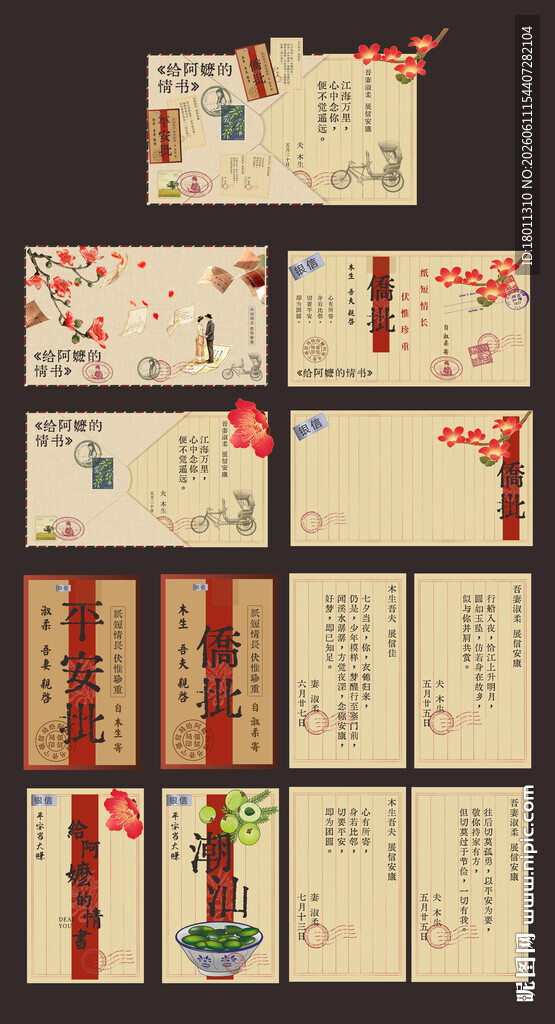 《给阿嬷的
情书》
僑批
平安批
江海万里，
心中念你，
便不觉遥远。
吾妻淑柔 展信安康
夫 木生
五月二十日
《给阿嬷的
情书》
银信
木生 吾夫 親啓
僑批
伏惟珍重
纸短情长
心有所寄，
身若比邻，
切要平安，
即为团圆。
自 淑柔 寄
《给阿嬷的情书》
《给阿嬷的
情书》
江海万里，
心中念你，
便不觉遥远。
吾妻淑柔 展信安康
夫 木生
五月二十日
银信
僑批
银信
平安批
淑柔 吾妻 親啓
紙短情長 伏惟珍重
自 木生 寄
银信
僑批
木生 吾夫 親啓
紙短情長 伏惟珍重
自 淑柔 寄
木生吾夫 展信佳
七夕当夜，你，衣锦归来，
仍是，少年模样，梦醒行至寨门前，
闻溪水潺潺，方觉夜深，念你安康，
好梦，即已知足。
妻 淑柔
六月廿七日
吾妻淑柔 展信安康
行船入夜，恰江上升明月，
圆如玉坠，仿若身在故乡，
似与你并肩共赏。
夫 木生
五月廿五日
银信
平字富大賺
給阿嬤的情書
DEAR
YOU
银信
平字富大賺
潮汕
木生吾夫 展信安康
心有所寄，
身若比邻，
切要平安，
即为团圆。
妻 淑柔
七月十三日
吾妻淑柔 展信安康
往后切莫孤勇，以平安为要，
敬你持家有方，
但切莫过于节俭，一切有我。
夫 木生
五月廿五日
ID:18011310 NO:20260611154407282104
昵图网 www.nipic.com